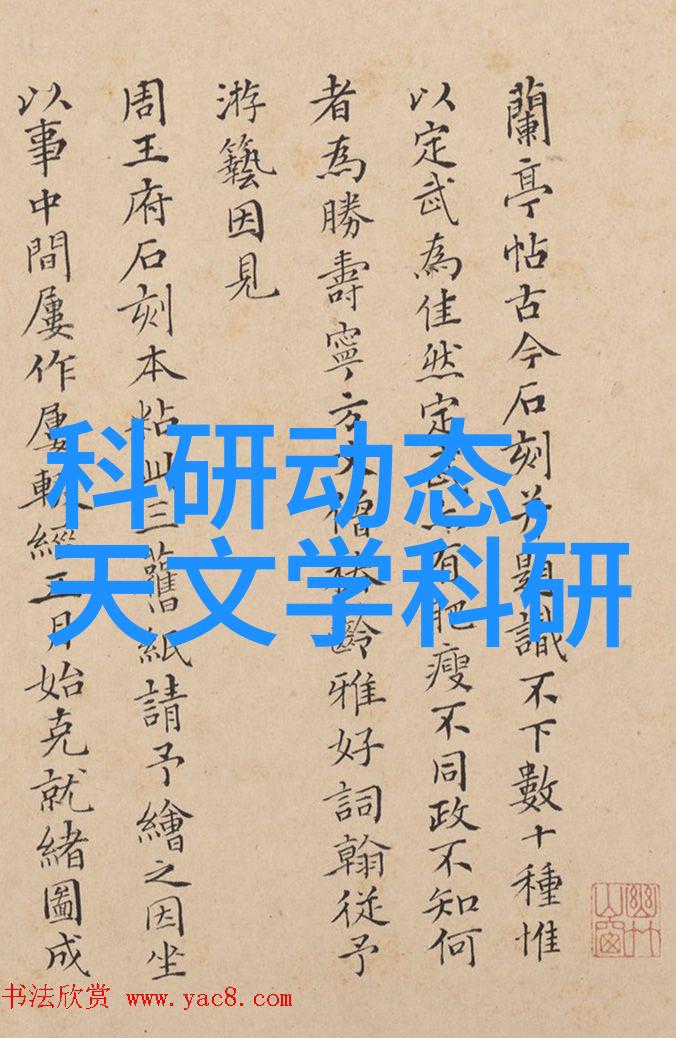 蘭亭帖古今石刻并題識不下數十種惟
以定武為佳然定武有肥瘦不同政不知何
者為勝壽寧方丈僧扶齡雅好詞翰從予
游藝因見
周王府石刻本粘此三舊紙請予繪之因坐
以事中間屢作屢輟經五月始克就緒圖成
科研动态,
天文学科研
书法欣赏 www.yac8.com